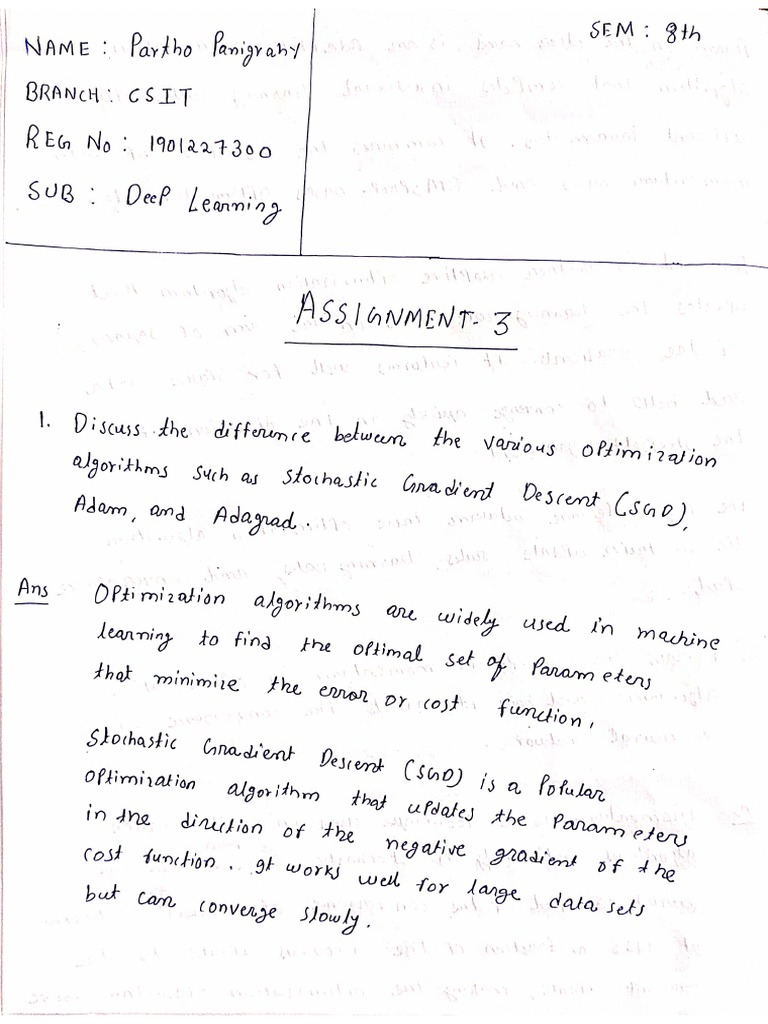 NAME : Partho Panigrahy
SEM : 8th
BRANCH : CSIT
REG No : 1901227300
SUB : Deep Learning
ASSIGNMENT- 3
1. Discuss the difference between the various optimization
algorithms such as Stochastic Gradient Descent (SGD),
Adam, and Adagrad.
Ans Optimization algorithms are widely used in machine
learning to find the optimal set of parameters
that minimize the error or cost function.
Stochastic Gradient Descent (SGD) is a Popular
optimization algorithm that updates the parameters
in the direction of the negative gradient of the
cost function. It works well for large data sets
but can converge slowly.